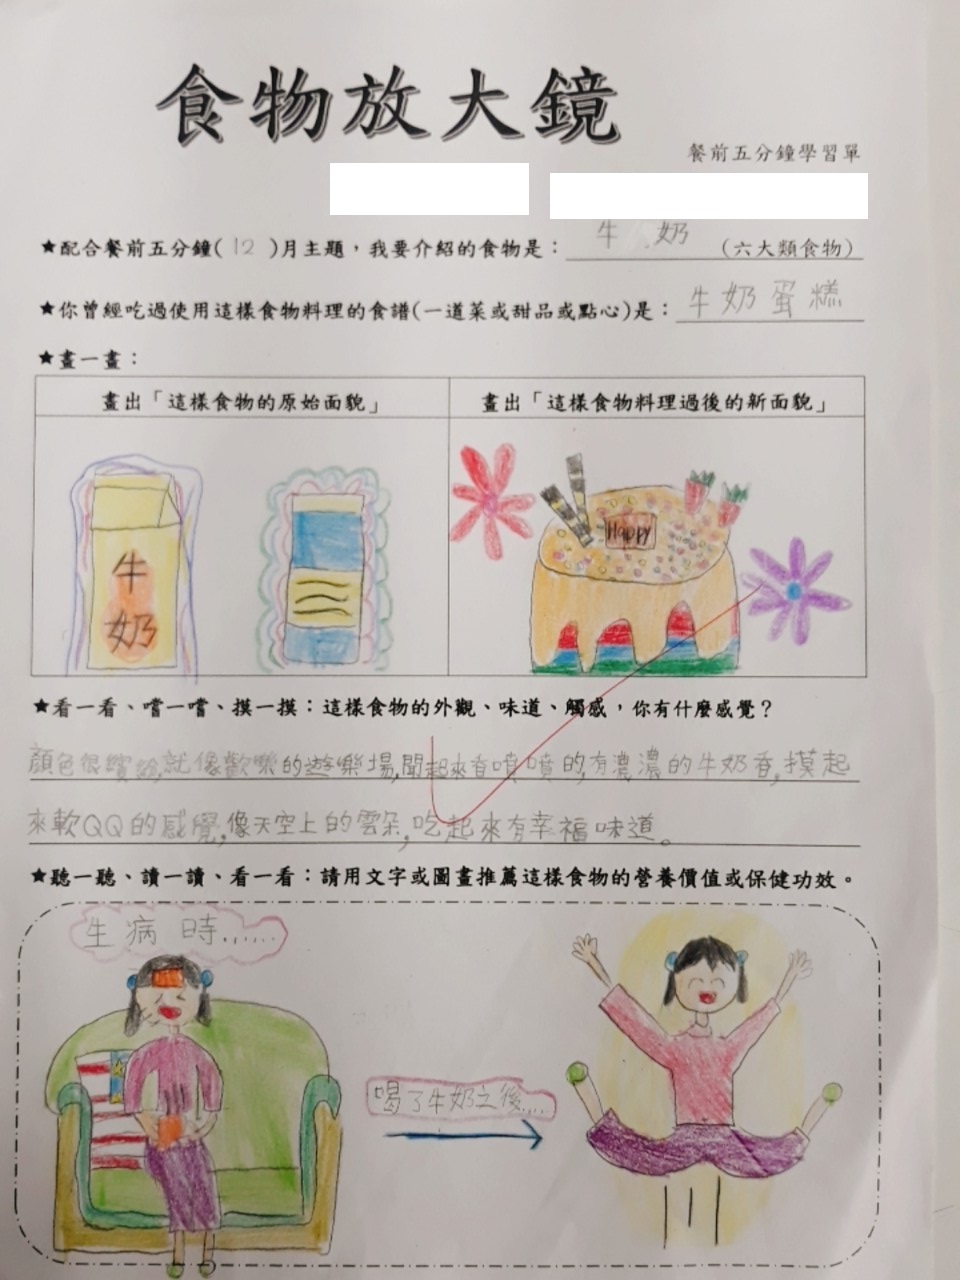 食物放大鏡
餐前五分鐘學習單
★配合餐前五分鐘( 12 )月主題，我要介紹的食物是：牛奶（六大類食物）
★你曾經吃過使用這樣食物料理的食譜(一道菜或甜品或點心)是：牛奶蛋糕
★畫一畫：
畫出「這樣食物的原始面貌」
畫出「這樣食物料理過後的新面貌」
牛奶
Happy
★看一看、嚐一嚐、摸一摸：這樣食物的外觀、味道、觸感，你有什麼感覺？
顏色很繽紛,就像歡樂的遊樂場,聞起來香噴噴的,有濃濃的牛奶香,摸起
來軟QQ的感覺,像天空上的雲朵,吃起來有幸福味道。
★聽一聽、讀一讀、看一看：請用文字或圖畫推薦這樣食物的營養價值或保健功效。
生病時......
喝了牛奶之後....